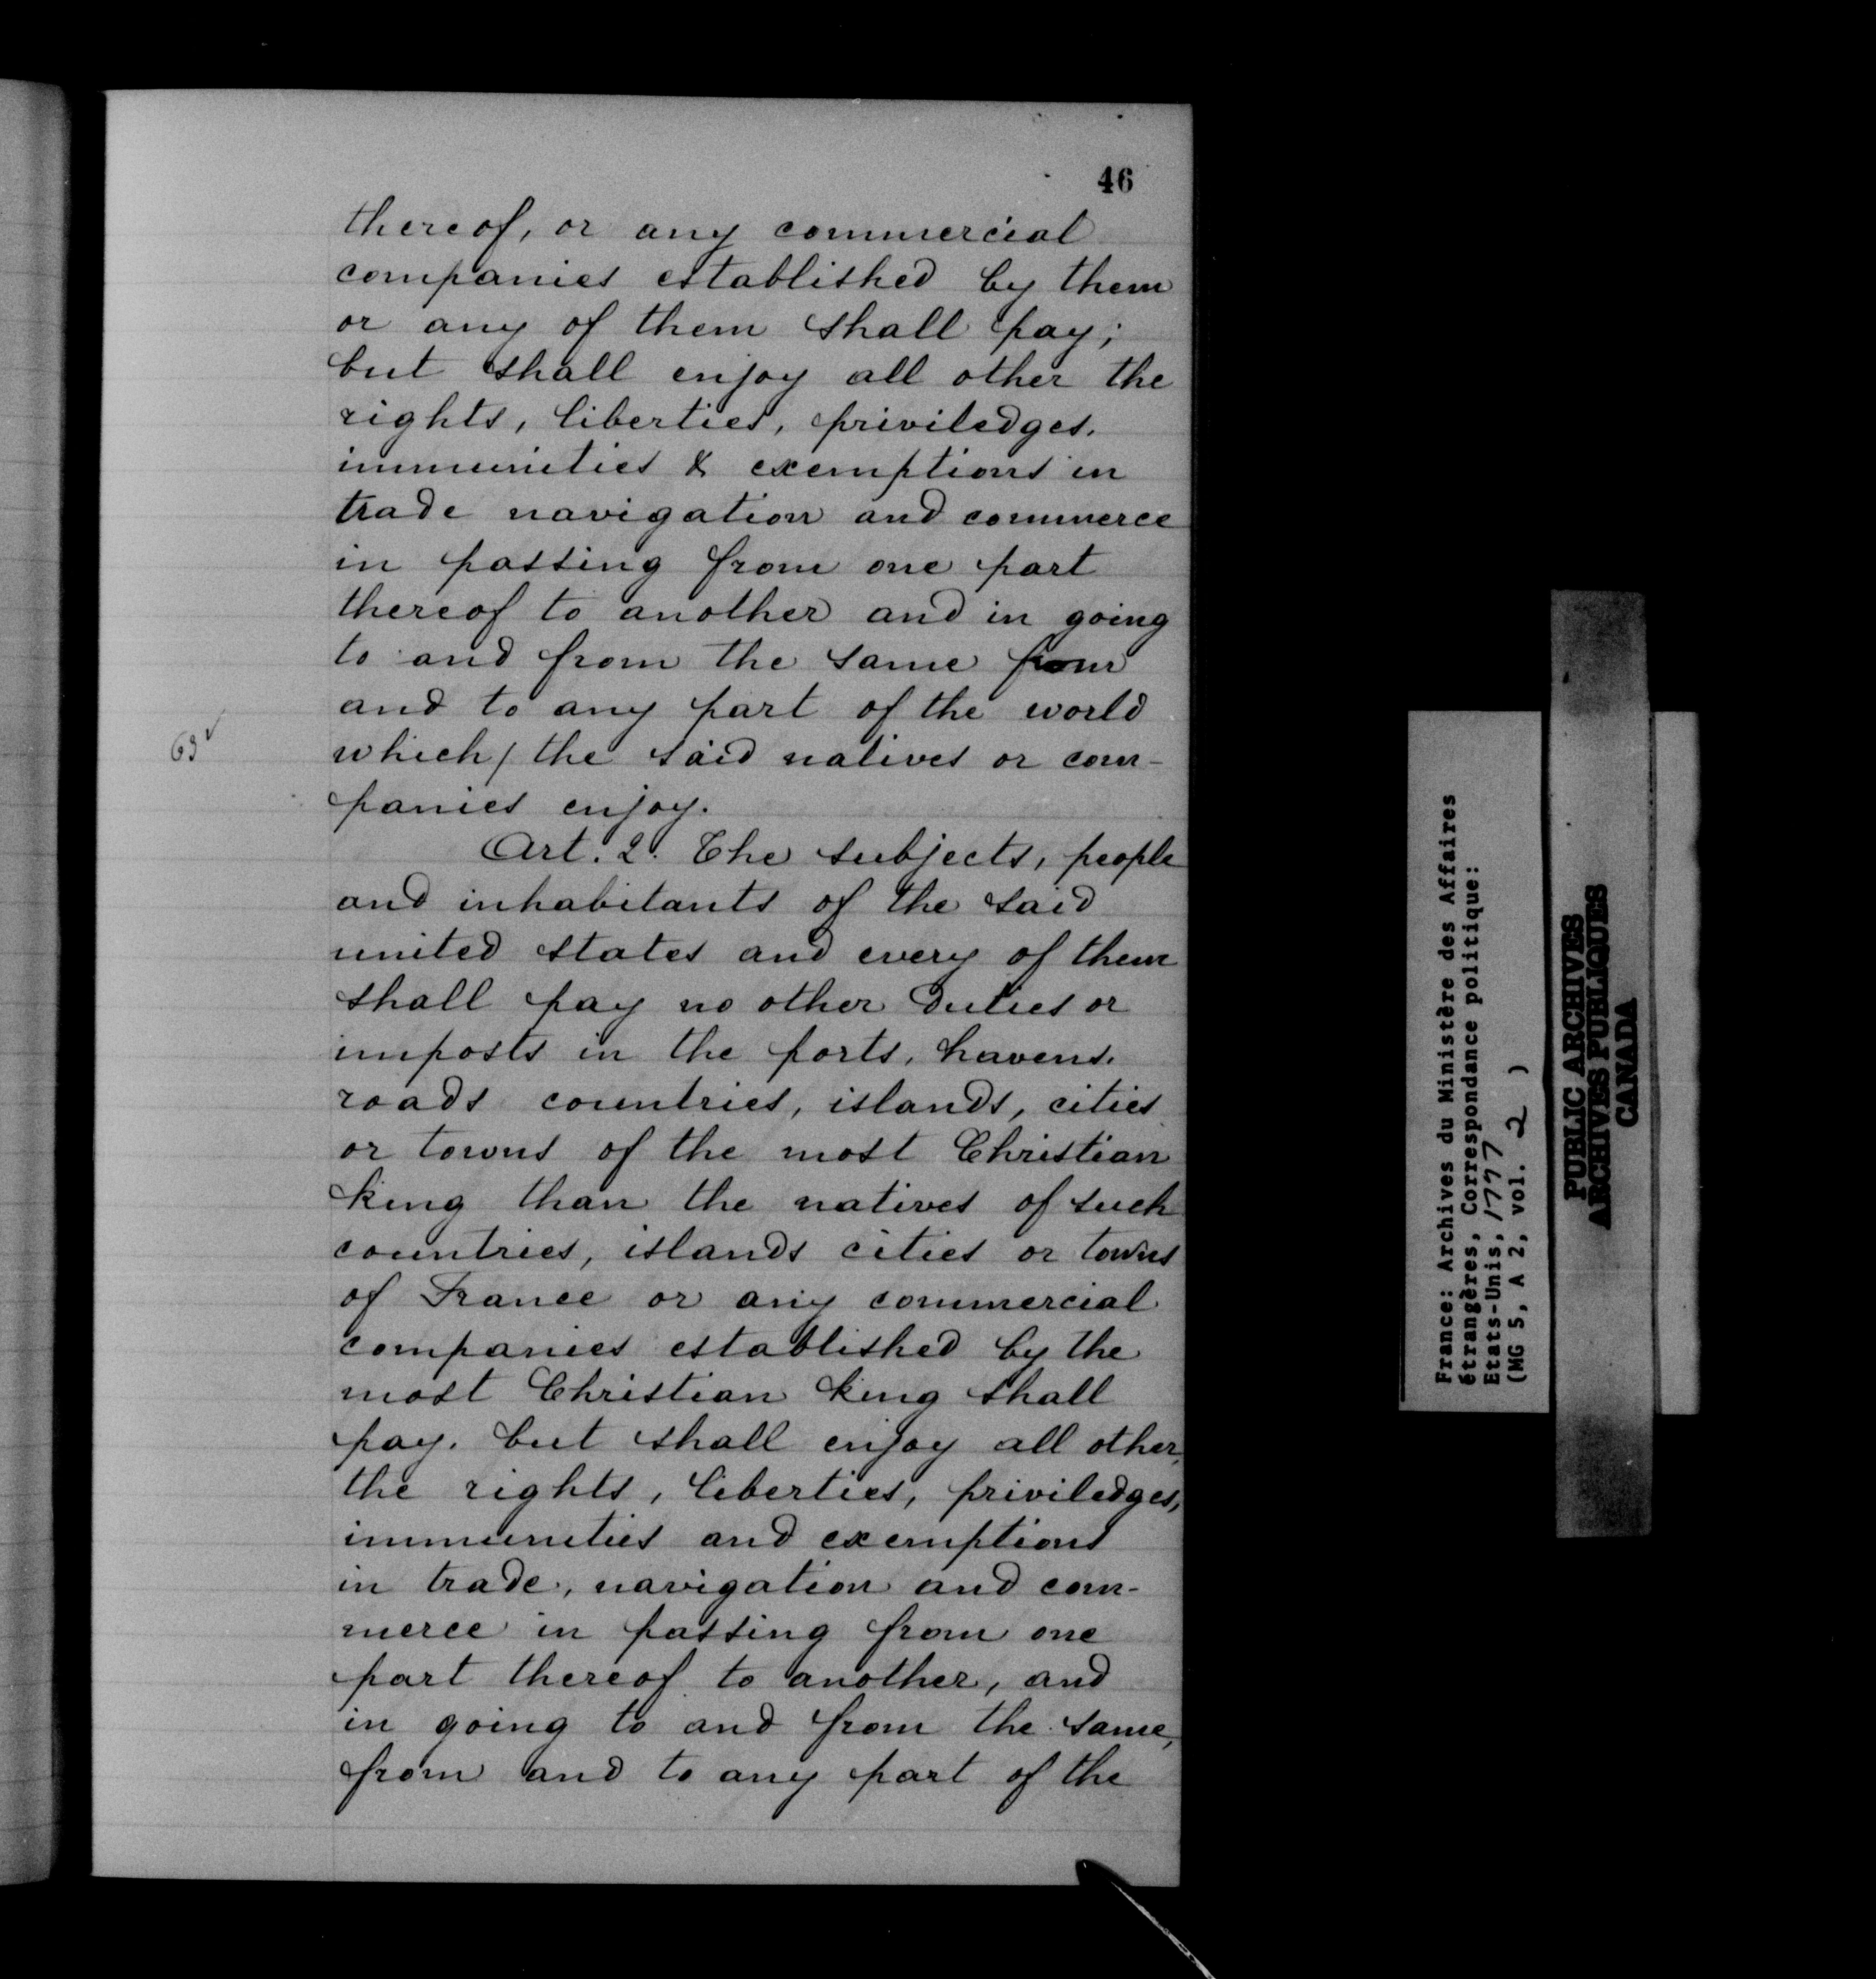 46
thereof, or any commercial
companies established by them
or any of them shall pay;
but shall enjoy all other the
rights, liberties, priviledges.
immunities & exemptions in
trade navigation and commerce
in passing from one part
thereof to another and in going
to and from the same from
and to any part of the world
63 v
which / the said natives or com-
panies enjoy.
Art. 2. The subjects, people
and inhabitants of the said
united states and every of them
shall pay no other duties or
imposts in the ports, havens.
roads countries, islands, cities
or towns of the most Christian
king than the natives of such
countries, islands cities or towns
of France or any commercial
companies established by the
most Christian king shall
pay. but shall enjoy all other,
the rights, liberties, priviledges,
immunities and exemptions
in trade, navigation and com-
merce in passing from one
part thereof to another, and
in going to and from the same,
from and to any part of the
France: Archives du Ministère des Affaires
étrangères, Correspondance politique:
Etats-Unis, 1777
(MG 5, A 2, vol. 2 )
PUBLIC ARCHIVES
ARCHIVES PUBLIQUES
CANADA